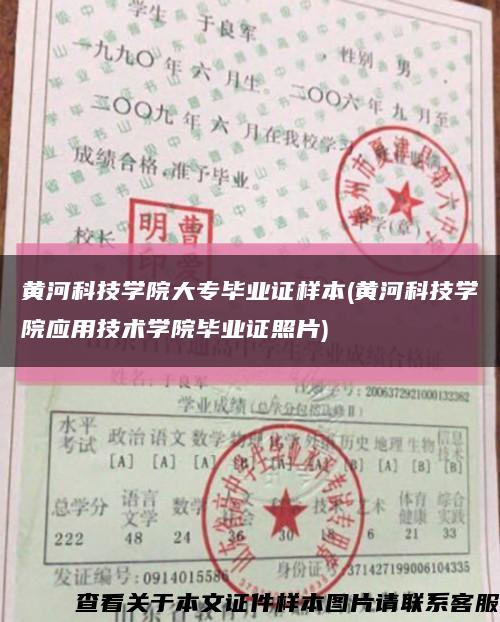 学生 于良军 ，性别 男 ，
一九九〇 年 六 月生。二〇〇六 年 九 月至
二〇〇九 年 六 月在我校学习
成绩合格，准予毕业。
德州市夏津县第六中学
校长
学(章)
曹爱
明印
黄河科技学院大专毕业证样本(黄河科技学
院应用技术学院毕业证照片)
姓名：于良军 注册学号：2006372921000132362
学业成绩（总学分包括必修Ⅱ）
水平考试 政治 语文 数学 物理 化学 外语 历史 地理 生物 信息技术
[A] [A] [A] [B] [A] [B] [A] [B] [B]
总学分 语言文学 数学 技术 艺术 体育健康 综合实践
222 48 24 36 30 18 6 21 33
发证编号：0914015586 身份证号：371427199006104335
查看关于本文证件样本图片请联系客服